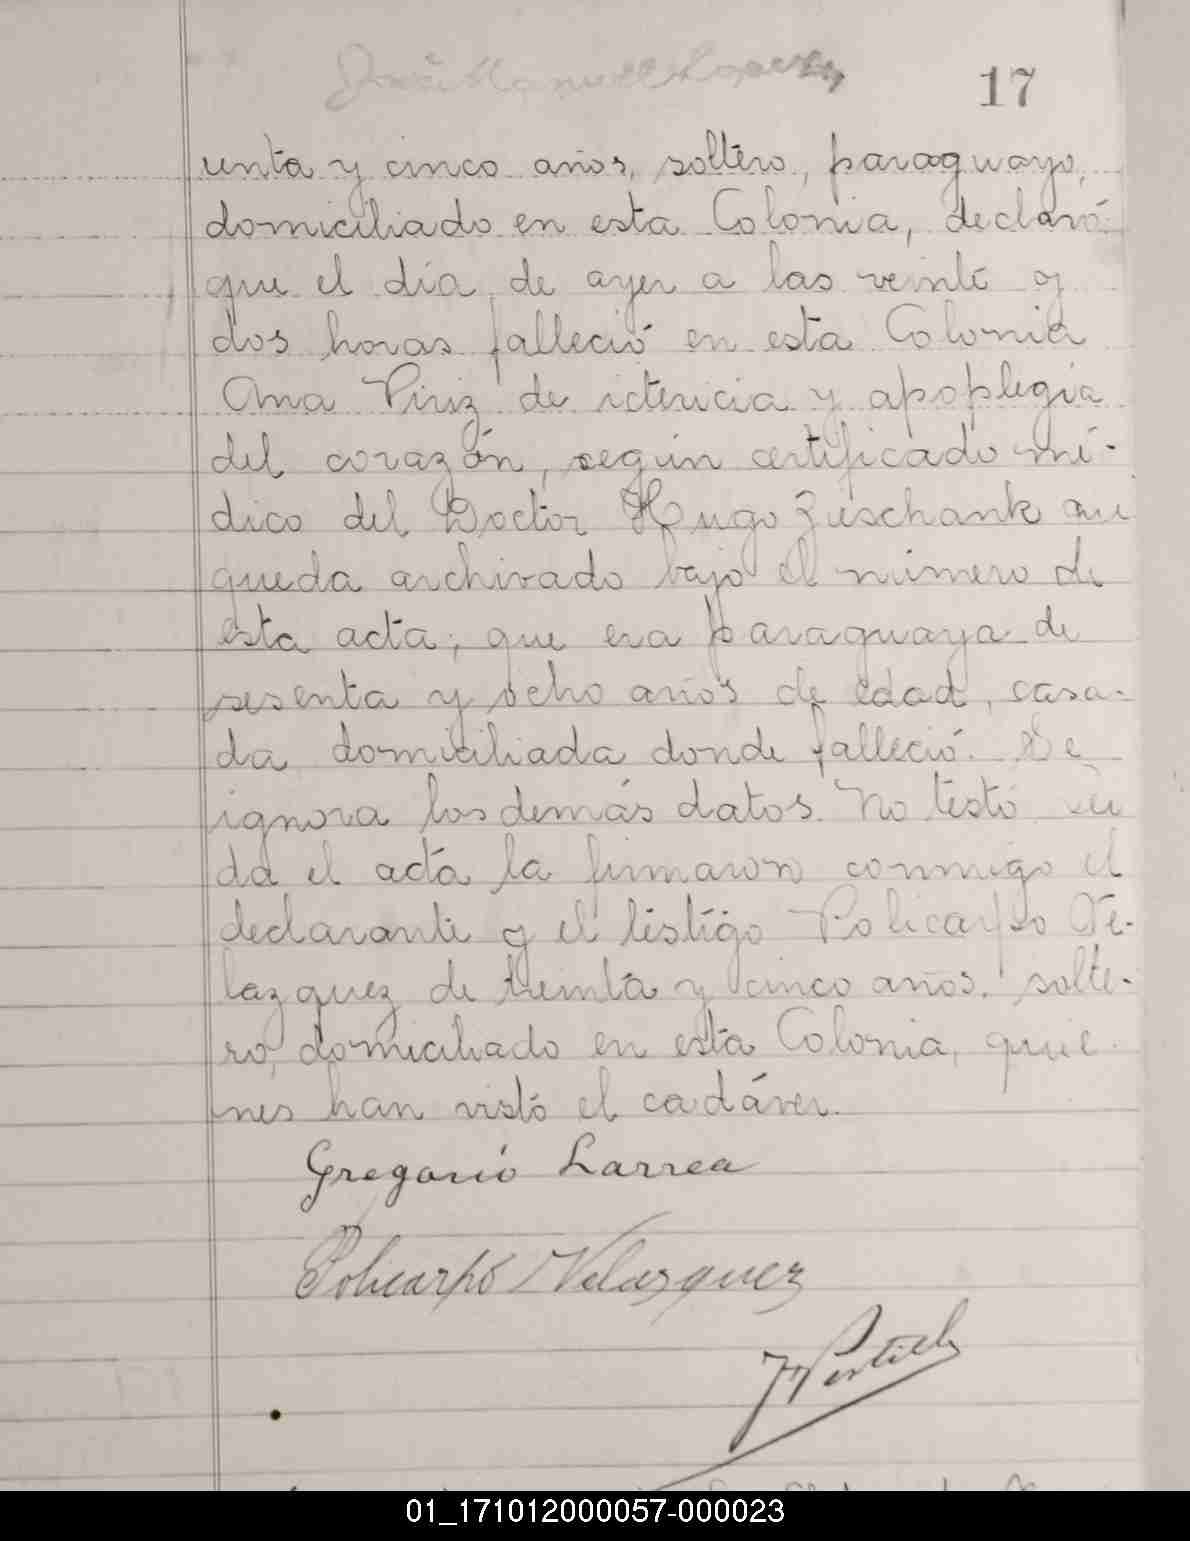 José Manuel Lopez
17
enta y cinco años, soltero, paraguayo,
domiciliado en esta Colonia, declaró
que el día de ayer a las veinte y
dos horas falleció en esta Colonia
Ana Piriz de ictericia y apoplegia
del corazón, según certificado mé-
dico del Doctor Hugo Zuschank que
queda archivado bajo el número de
esta acta; que era paraguaya de
sesenta y ocho años de edad, casa-
da domiciliada donde falleció. Se
ignora los demás datos. No testó. Lei
da el acta la firmaron conmigo el
declarante y el testigo Policarpo Ve-
lazquez de treinta y cinco años, solte-
ro, domiciliado en esta Colonia, quie-
nes han visto el cadáver.
Gregorió Larrea
Policarpó Velazquez
01_171012000057-000023